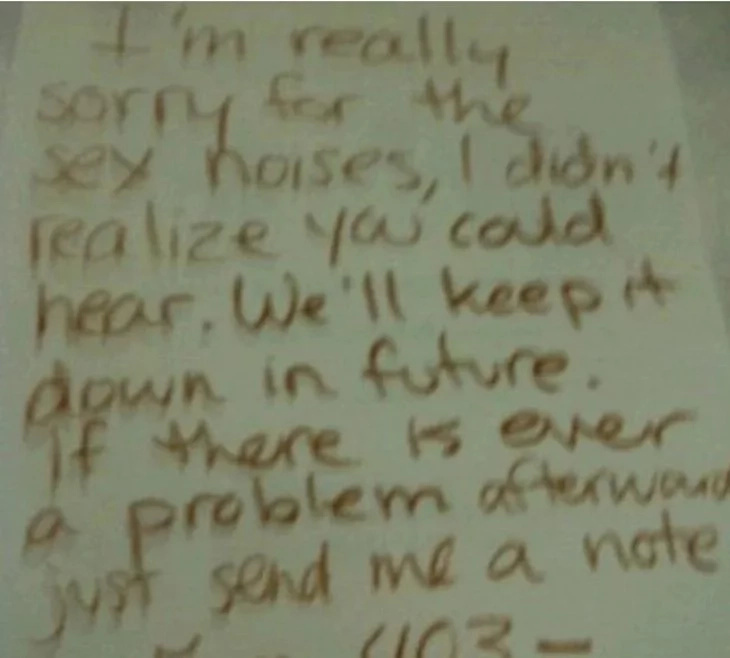 I'm really
sorry for the
sex noises, I didn't
realize you could
hear. We'll keep it
down in future.
If there is ever
a problem afterward
just send me a note
403-